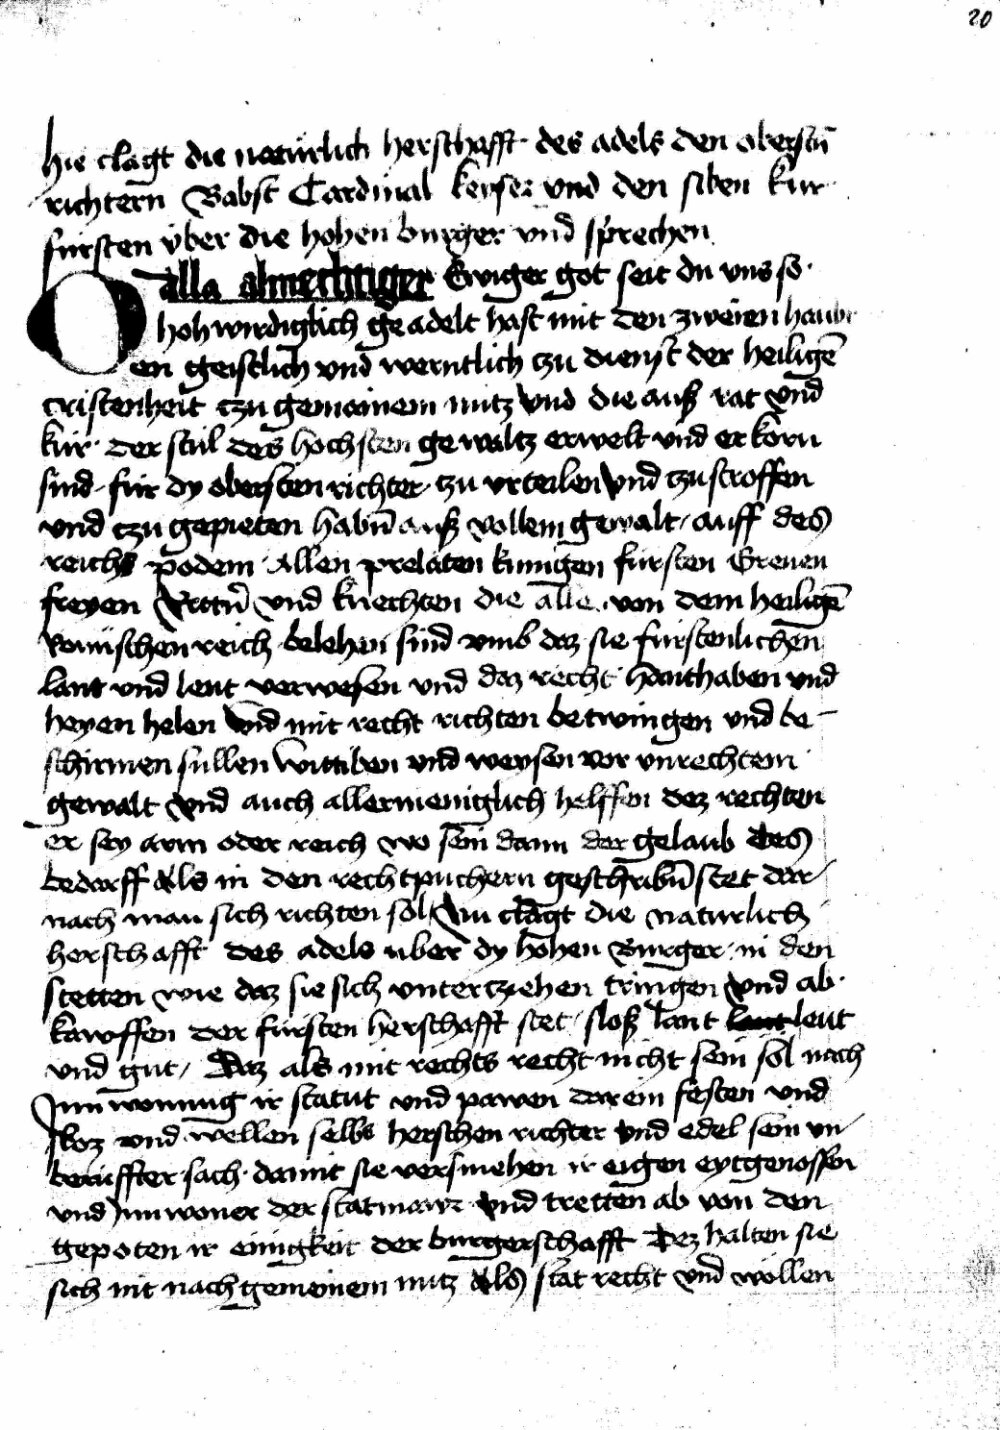 20
hie clagt die naturlich herschafft des adels den oberstn̄
richtern Babst Cardinal keyser vnd den siben kur
fursten vber die hohen burger vnd sprechen
O alla almechtiger Ewiger got seit du vns so
hohwirdiglich geadelt hast mit den zweien haubt
en geistlich vnd werntlich tzu dienst der heiligē
cristenheit tzu gemainem nutz vnd die auß rat vnd
kur der stul des hochsten gewaltz erwelt vnd erkorn
sind fur dy obersten richter tzu vrteilen vnd tzu stroffen
vnd tzu gepieten habn̄ auß vollem gewalt auff des
reichs podem Allen prelaten kunigen fursten Greuen
freyen Rittn̄ vnd knechten die alle von dem heiligē
Romischen reich belehen sind vmb daz sie furstenlichen
lant vnd leut verwesen vnd daz recht hanthaben vnd
heyen helen vnd mit recht richten betwingen vnd be-
schirmen sullen wittiben vnd weysen vor vnrechtem
gewalt vnd auch allermeniglich helffen dez rechten
er sey arm oder reich wo sein dann der gelaub des
bedarff Als in den rechtpuchern geschribn̄ stet dar
nach man sich richten sol Nu clagt die naturlich
herschafft des adels uber dy hohen Burger in den
stetten wie daz sie sich vntertziehen tringen vnd ab
kawffen der fursten herschafft stet sloß lant leut
vnd gut / Daz als mit rechts recht nicht sein sol nach
Innwonung ir statut vnd pawen darein festen vnd
sloz vnd wellen selbs herschen richter vnd edel sein vn
beruffter sach damit sie versmehen ir eigen eytgenossen
vnd Innwoner der statmawr vnd tretten ab von den
gepoten ir einigkeit der burgerschafft Dez halten sie
sich nit nach gemeinem nutz Als stat recht vnd wollen